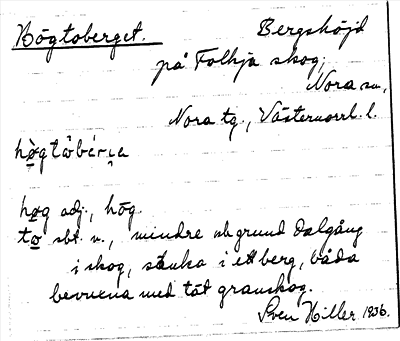 Högtoberget. Bergshöjd
på Folkja skog,
Nora sn,
Nora tg., Västernorrl. l.
hø̀gtåbæ̀rja
høg adj., hög.
to sbt. n., mindre grund dalgång
i skog, stauka i ett berg, båda
bevuxna med tät granskog.
Sven Hiller 1936.